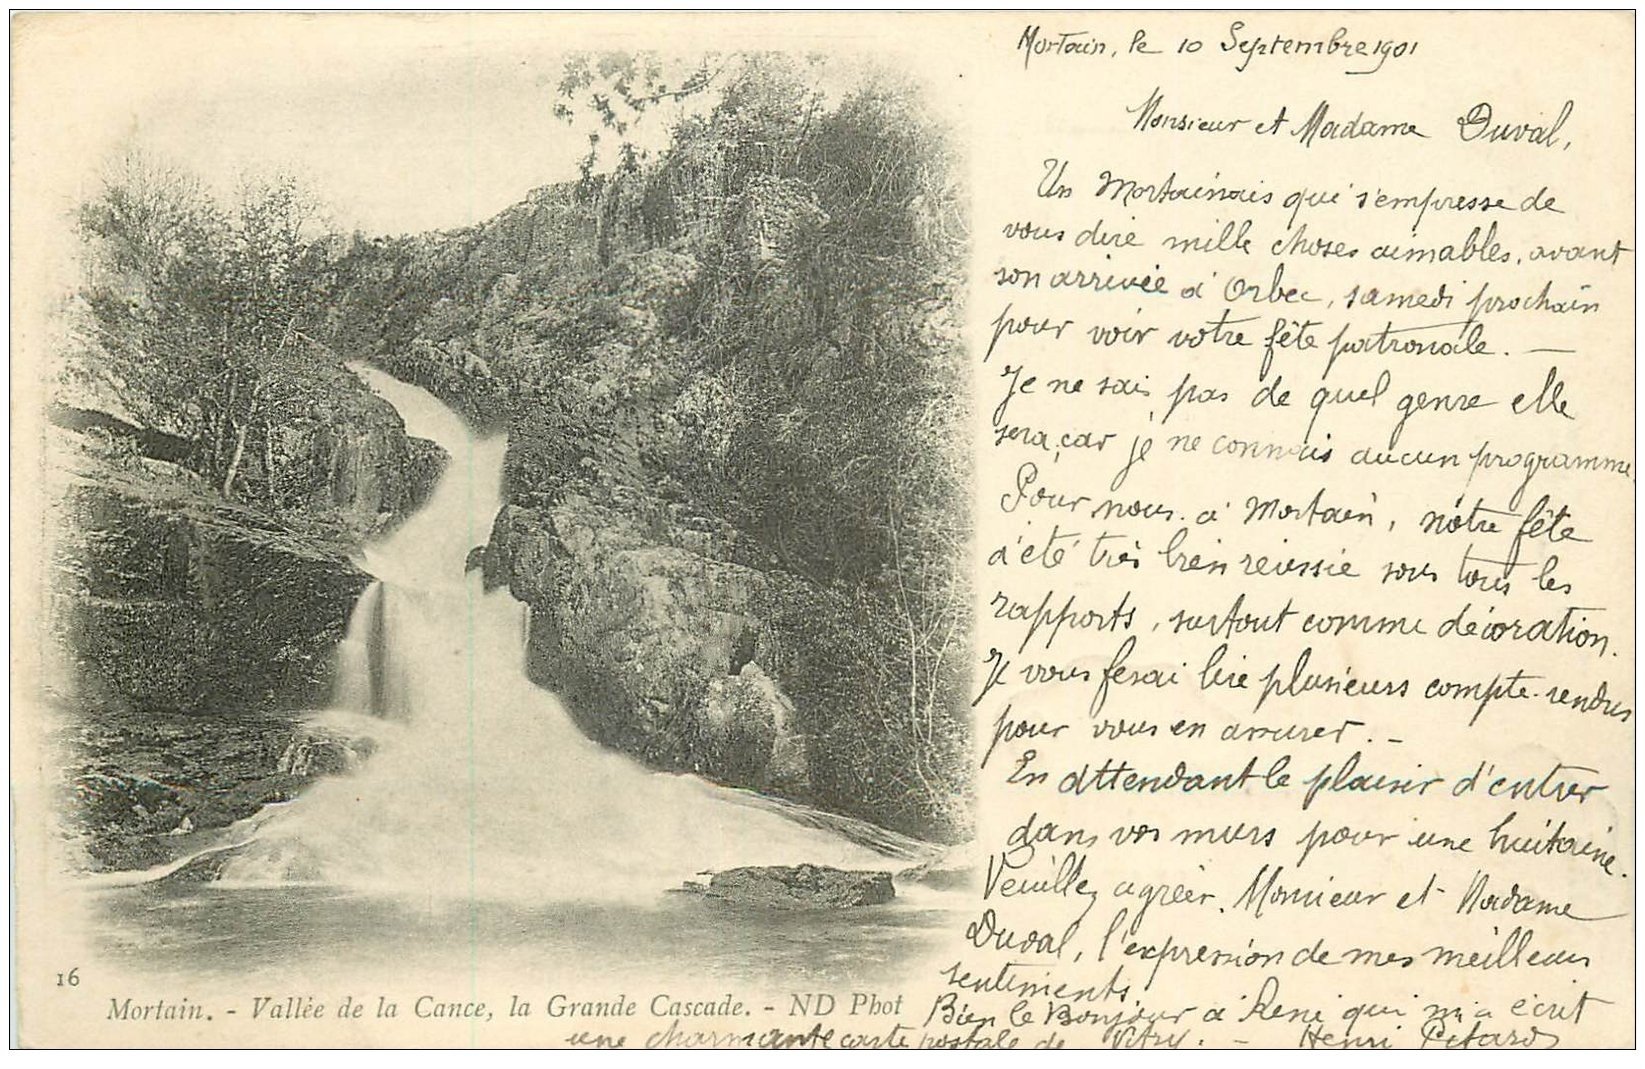 Mortain, le 10 Septembre 1901
Monsieur et Madame Duval,
Un Mortainais qui s'empresse de
vous dire mille choses aimables, avant
son arrivée à Orbec, samedi prochain
pour voir votre fête patronale. —
Je ne sais pas de quel genre elle
sera, car je ne connais aucun programme.
Pour nous à Mortain, nôtre fête
a été très bien réussie sous tous les
rapports, surtout comme décoration.
Je vous ferai lire plusieurs compte-rendus
pour vous en assurer. -
En attendant le plaisir d'entrer
dans vos murs pour une huitaine.
Veuillez agréer, Monsieur et Madame
Duval, l'expression de mes meilleurs
sentiments.
Bien le Bonjour à René qui m'a écrit
une charmante carte postale de Vitry. - Henri
16
Mortain. - Vallée de la Cance, la Grande Cascade. - ND Phot